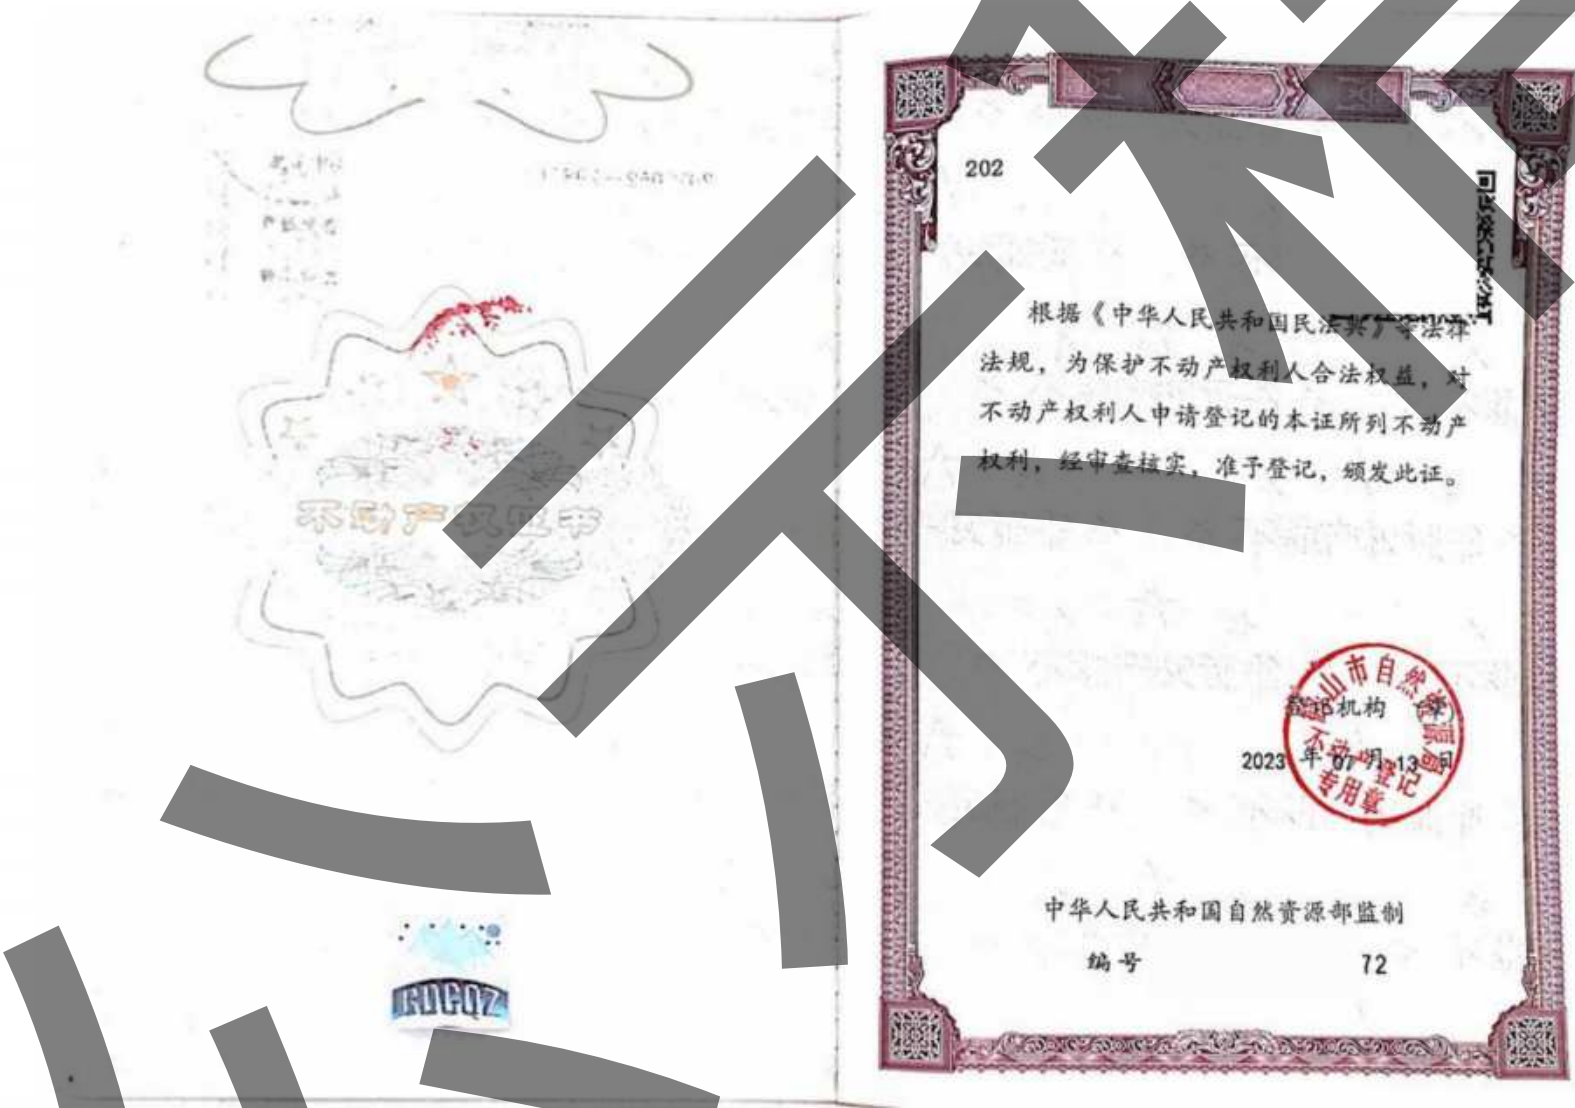 不动产权证书
202
根据《中华人民共和国民法典》等法律
法规，为保护不动产权利人合法权益，对
不动产权利人申请登记的本证所列不动产
权利，经审查核实，准予登记，颁发此证。
山市自然资源局
不动产登记
专用章
登记机构（章）
2023 年 07 月 13 日
中华人民共和国自然资源部监制
编号 72